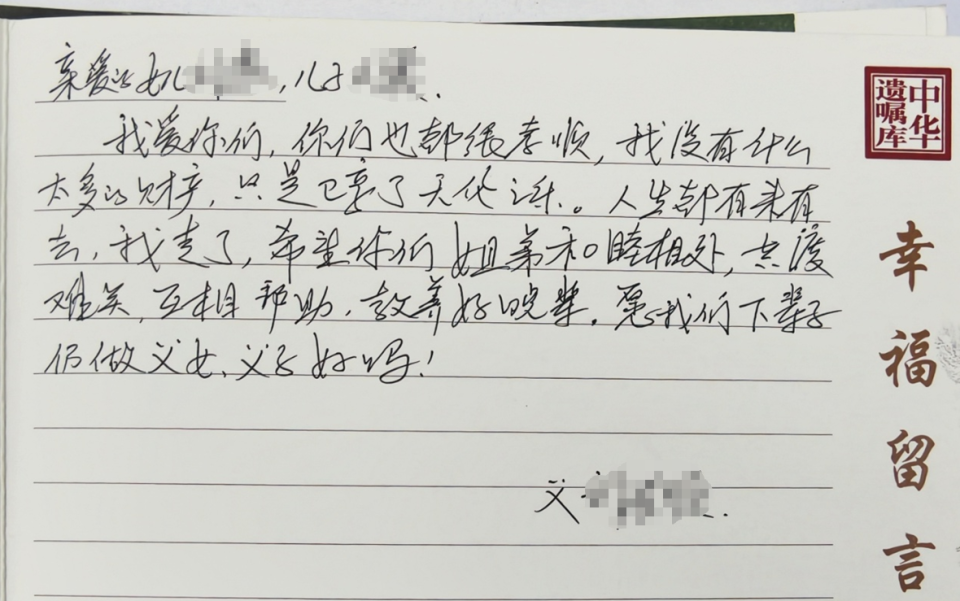 亲爱的女儿,儿子
我爱你们,你们也都很孝顺,我没有什么
太多的财产,只是已享了天伦之乐。人生都有来有
去,我走了,希望你们姐弟和睦相处,共渡
难关,互相帮助,教养好晚辈。愿我们下辈子
仍做父女、父子好吗!
父
中华
遗嘱库
幸福留言